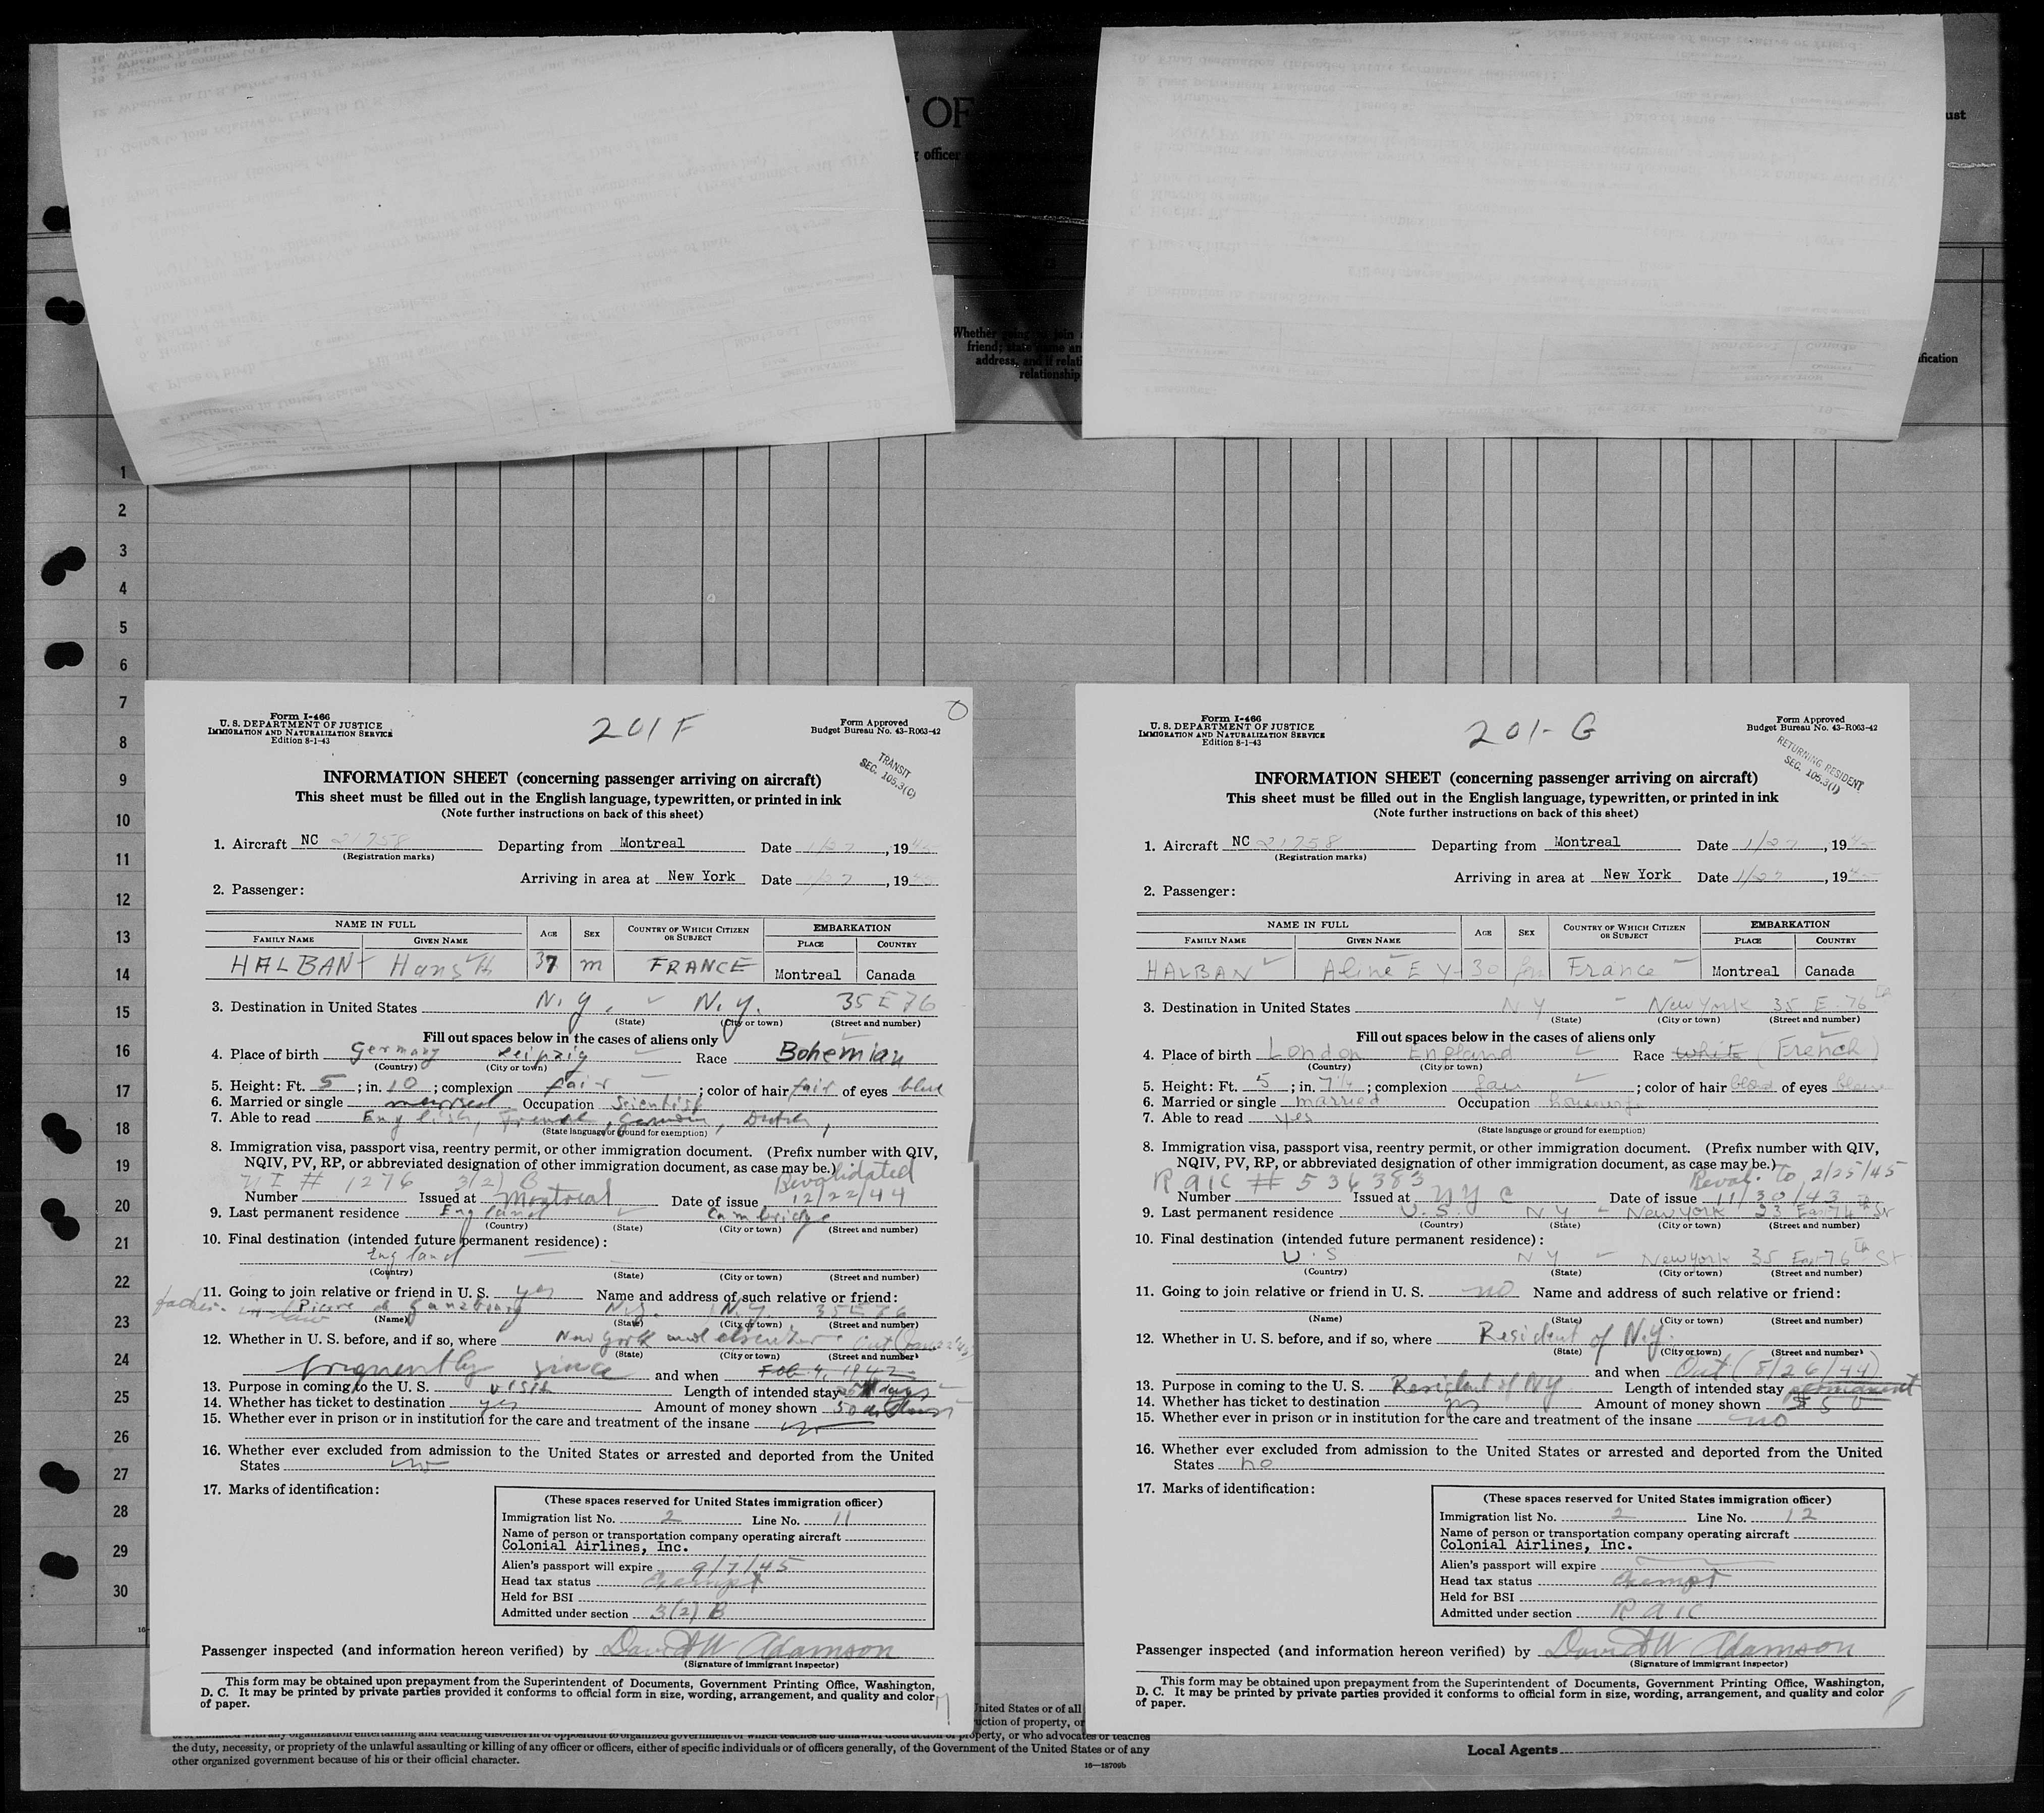 OF
officer
ust
Whether going to join
friend; state name an
address, and if relati
relationship
fication
1
2
3
4
5
6
7
8
9
10
11
12
13
14
15
16
17
18
19
20
21
22
23
24
25
26
27
28
29
30
Form I-466
U. S. DEPARTMENT OF JUSTICE
IMMIGRATION AND NATURALIZATION SERVICE
Edition 8-1-43
201 F
Form Approved
Budget Bureau No. 43-R063-42
TRANSIT
SEC. 105.3(C)
INFORMATION SHEET (concerning passenger arriving on aircraft)
This sheet must be filled out in the English language, typewritten, or printed in ink
(Note further instructions on back of this sheet)
1. Aircraft NC 21758 Departing from Montreal Date 1/27, 1945
(Registration marks)
Arriving in area at New York Date 1/27, 1945
2. Passenger:
NAME IN FULL AGE SEX COUNTRY OF WHICH CITIZEN OR SUBJECT EMBARKATION
FAMILY NAME GIVEN NAME PLACE COUNTRY
HALBAN Hans H 37 m FRANCE Montreal Canada
3. Destination in United States N.Y. N.Y. 35 E 76
(State) (City or town) (Street and number)
Fill out spaces below in the cases of aliens only
4. Place of birth Germany Leipzig Race Bohemian
(Country) (City or town)
5. Height: Ft. 5; in. 10; complexion fair; color of hair fair of eyes blue
6. Married or single married Occupation Scientist
7. Able to read English, French, German, Dutch,
(State language or ground for exemption)
8. Immigration visa, passport visa, reentry permit, or other immigration document. (Prefix number with QIV,
NQIV, PV, RP, or abbreviated designation of other immigration document, as case may be.)
# 1276 3(2) B Revalidated
Number Issued at Montreal Date of issue 12/22/44
9. Last permanent residence England Cambridge
(Country) (State) (City or town) (Street and number)
10. Final destination (intended future permanent residence):
England
(Country) (State) (City or town) (Street and number)
11. Going to join relative or friend in U. S. yes Name and address of such relative or friend:
father in law Pierre de Gunzbourg N.Y. N.Y. 35 E 76
(Name) (State) (City or town) (Street and number)
12. Whether in U. S. before, and if so, where New York and elsewhere Out
(State) (City or town) (Street and number)
frequently since and when Feb 4, 1942
13. Purpose in coming to the U. S. visit Length of intended stay days
14. Whether has ticket to destination yes Amount of money shown 50
15. Whether ever in prison or in institution for the care and treatment of the insane no
16. Whether ever excluded from admission to the United States or arrested and deported from the United
States no
17. Marks of identification:
(These spaces reserved for United States immigration officer)
Immigration list No. 2 Line No. 11
Name of person or transportation company operating aircraft
Colonial Airlines, Inc.
Alien's passport will expire 9/7/45
Head tax status Exempt
Held for BSI
Admitted under section 3(2) B
Passenger inspected (and information hereon verified) by David W Adamson
(Signature of Immigrant Inspector)
This form may be obtained upon prepayment from the Superintendent of Documents, Government Printing Office, Washington,
D. C. It may be printed by private parties provided it conforms to official form in size, wording, arrangement, and quality and color
of paper.
Form I-466
U. S. DEPARTMENT OF JUSTICE
IMMIGRATION AND NATURALIZATION SERVICE
Edition 8-1-43
201-G
Form Approved
Budget Bureau No. 43-R063-42
RETURNING RESIDENT
SEC. 105.3(1)
INFORMATION SHEET (concerning passenger arriving on aircraft)
This sheet must be filled out in the English language, typewritten, or printed in ink
(Note further instructions on back of this sheet)
1. Aircraft NC 21758 Departing from Montreal Date 1/27, 1945
(Registration marks)
Arriving in area at New York Date 1/27, 1945
2. Passenger:
NAME IN FULL AGE SEX COUNTRY OF WHICH CITIZEN OR SUBJECT EMBARKATION
FAMILY NAME GIVEN NAME PLACE COUNTRY
HALBAN Aline E Y 30 fem France Montreal Canada
3. Destination in United States NY New York 35 E. 76th
(State) (City or town) (Street and number)
Fill out spaces below in the cases of aliens only
4. Place of birth London England Race white (French)
(Country) (City or town)
5. Height: Ft. 5; in. 7 1/2; complexion fair; color of hair blond of eyes
6. Married or single married Occupation housewife
7. Able to read yes
(State language or ground for exemption)
8. Immigration visa, passport visa, reentry permit, or other immigration document. (Prefix number with QIV,
NQIV, PV, RP, or abbreviated designation of other immigration document, as case may be.)
RAIC # 536383 Reval. to 2/25/45
Number Issued at NYC Date of issue 11/30/43
9. Last permanent residence U.S. NY New York 23 East 74th St
(Country) (State) (City or town) (Street and number)
10. Final destination (intended future permanent residence):
U.S NY New York 35 East 76th St
(Country) (State) (City or town) (Street and number)
11. Going to join relative or friend in U. S. no Name and address of such relative or friend:
(Name) (State) (City or town) (Street and number)
12. Whether in U. S. before, and if so, where Resident of N.Y.
(State) (City or town) (Street and number)
and when Out (8/26/44)
13. Purpose in coming to the U. S. Resident of NY Length of intended stay permanent
14. Whether has ticket to destination yes Amount of money shown $50
15. Whether ever in prison or in institution for the care and treatment of the insane no
16. Whether ever excluded from admission to the United States or arrested and deported from the United
States no
17. Marks of identification:
(These spaces reserved for United States immigration officer)
Immigration list No. 2 Line No. 12
Name of person or transportation company operating aircraft
Colonial Airlines, Inc.
Alien's passport will expire
Head tax status Exempt
Held for BSI
Admitted under section RAIC
Passenger inspected (and information hereon verified) by David W Adamson
(Signature of Immigrant Inspector)
This form may be obtained upon prepayment from the Superintendent of Documents, Government Printing Office, Washington,
D. C. It may be printed by private parties provided it conforms to official form in size, wording, arrangement, and quality and color
of paper.
United States or of all
uction of property, or
property, or who advocates or teaches
the duty, necessity, or propriety of the unlawful assaulting or killing of any officer or officers, either of specific individuals or of officers generally, of the Government of the United States or of any
other organized government because of his or their official character.
16—18709b
Local Agents